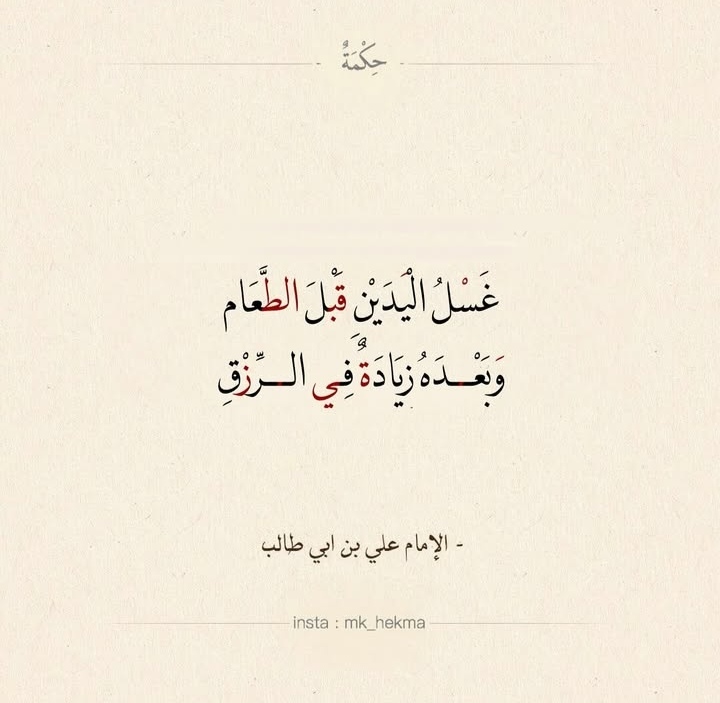 حِكْمَةٌ
غَسْلُ الْيَدَيْنِ قَبْلَ الطَّعَام
وَبَعْـــدَهُ زِيَادَةٌ فِــي الـــرِّزْقِ
- الإمام علي بن ابي طالب
insta : mk_hekma